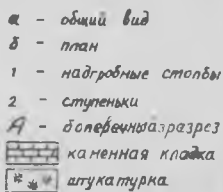 а - общий вид
б - план
1 - надгробные столбы
2 - ступеньки
А - поперечный разрез
каменная кладка
штукатурка